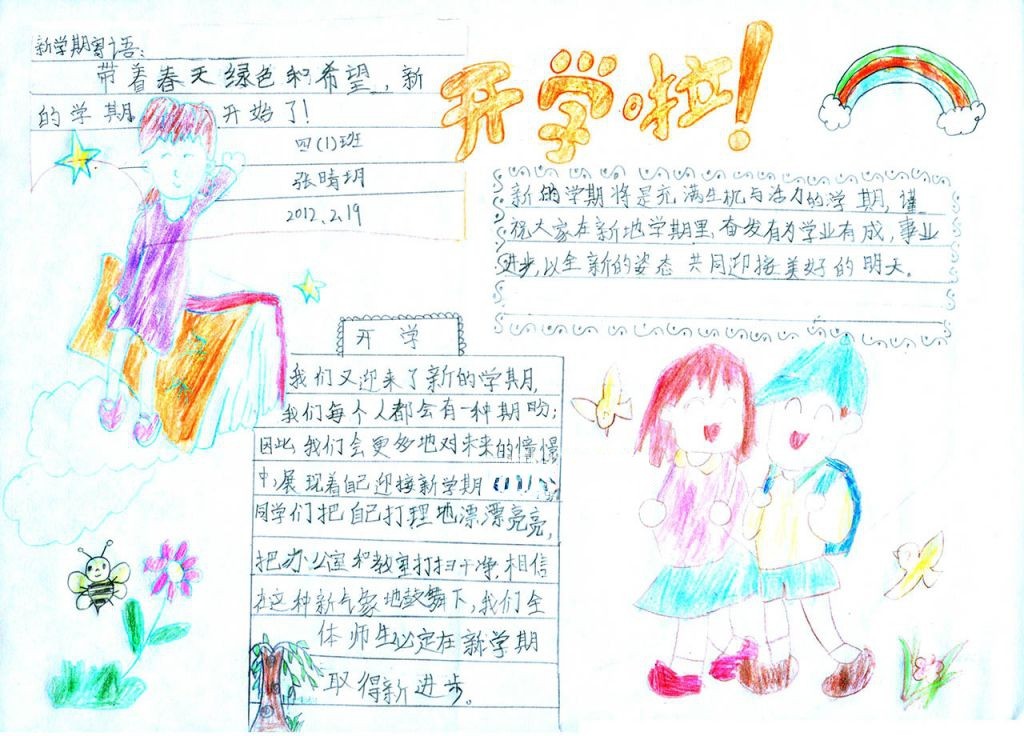 新学期寄语:
带着春天绿色和希望,新
的学期 开始了!
四(1)班
张晴玥
2012.2.19
开学啦!
新的学期将是充满生机与活力的学期,谨
祝大家在新地学期里奋发有为学业有成,事业
进步,以全新的姿态共同迎接美好的明天。
开学
我们又迎来了新的学期,
我们每个人都会有一种期盼;
因此我们会更多地对未来的憧憬
中,展现着自己迎接新学期
同学们把自己打理地漂漂亮亮,
把办公室和教室打扫干净,相信
在这种新气象地鼓舞下,我们全
体师生必定在新学期
取得新进步。